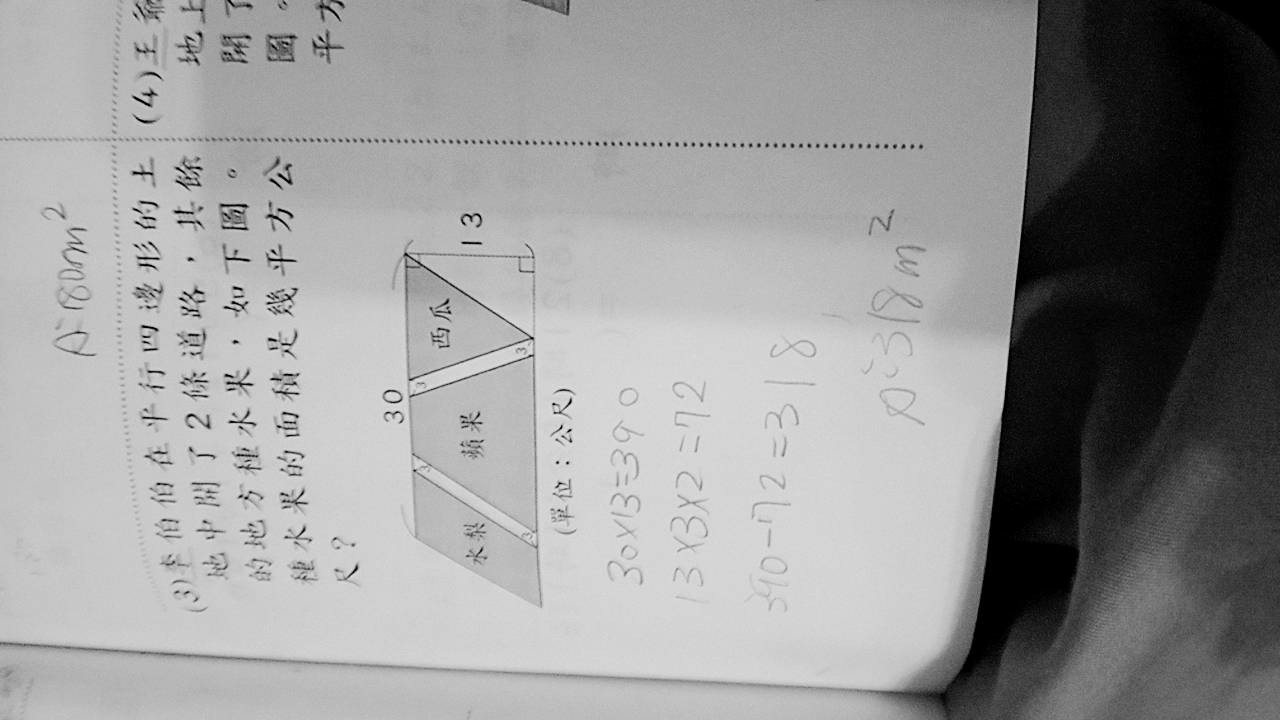 A:180m²
(3)李伯伯在平行四邊形的土
地中開了2條道路，其餘
的地方種水果，如下圖。
種水果的面積是幾平方公
尺？
30
水梨
3
3
蘋果
3
3
西瓜
13
(單位：公尺)
30×13=390
13×3×2=72
390-72=318
A:318m²
(4)王爺
地上
開了
圖。
平方